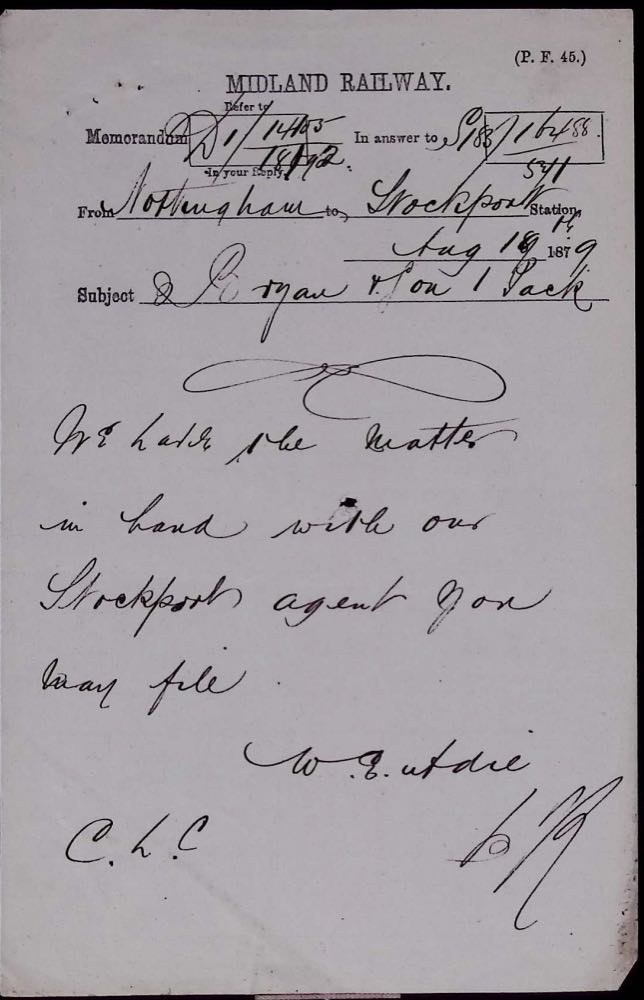 (P. F. 45.)
MIDLAND RAILWAY.
Refer to
Memorandum D1/14405 In answer to S188/16488
18/92. 5211
in your Reply.
From Nottingham to Stockport Station,
Aug 19 1879
Subject Ryan & Son 1 Pack
We have the matter
in hand with our
Stockport agent you
may file
W. E. Adie
C. L. C